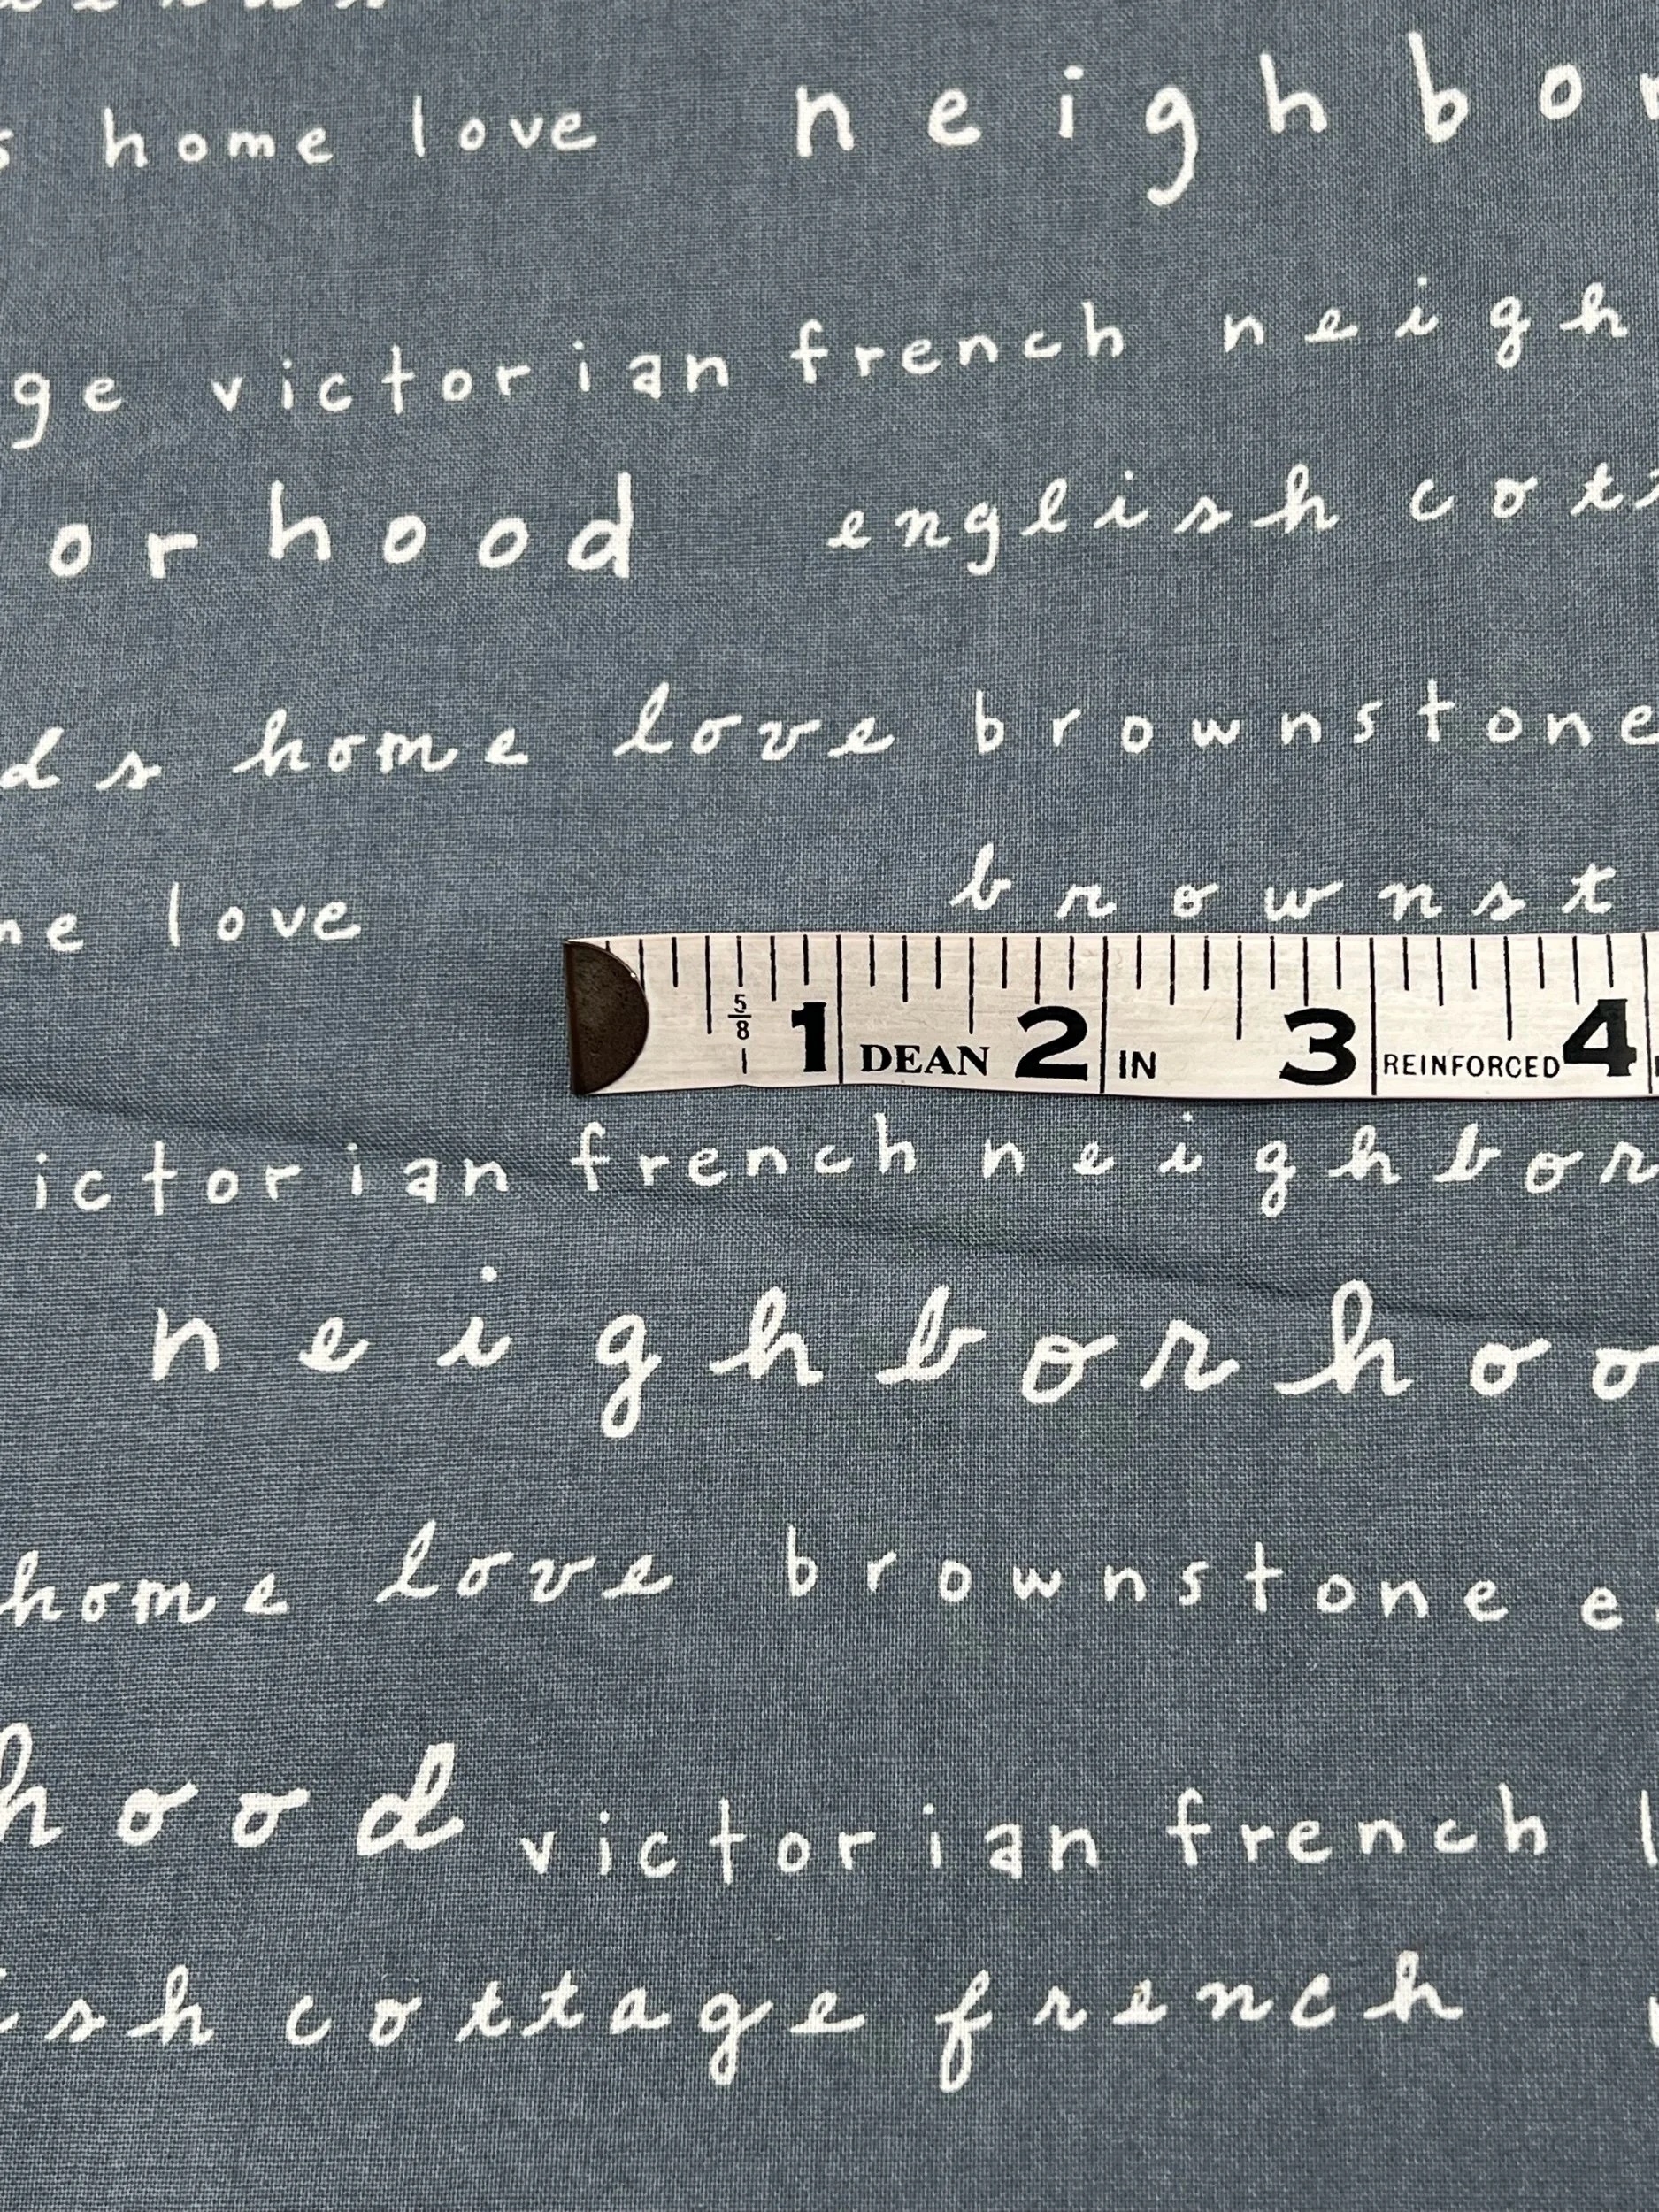 s home love neighbor
ge victorian french neigh
orhood english cott
ds home love brownstone
me love brownst
5/8 1 DEAN 2 IN 3 REINFORCED 4
ictorian french neighbor
neighborhoo
home love brownstone e
hood victorian french l
ish cottage french